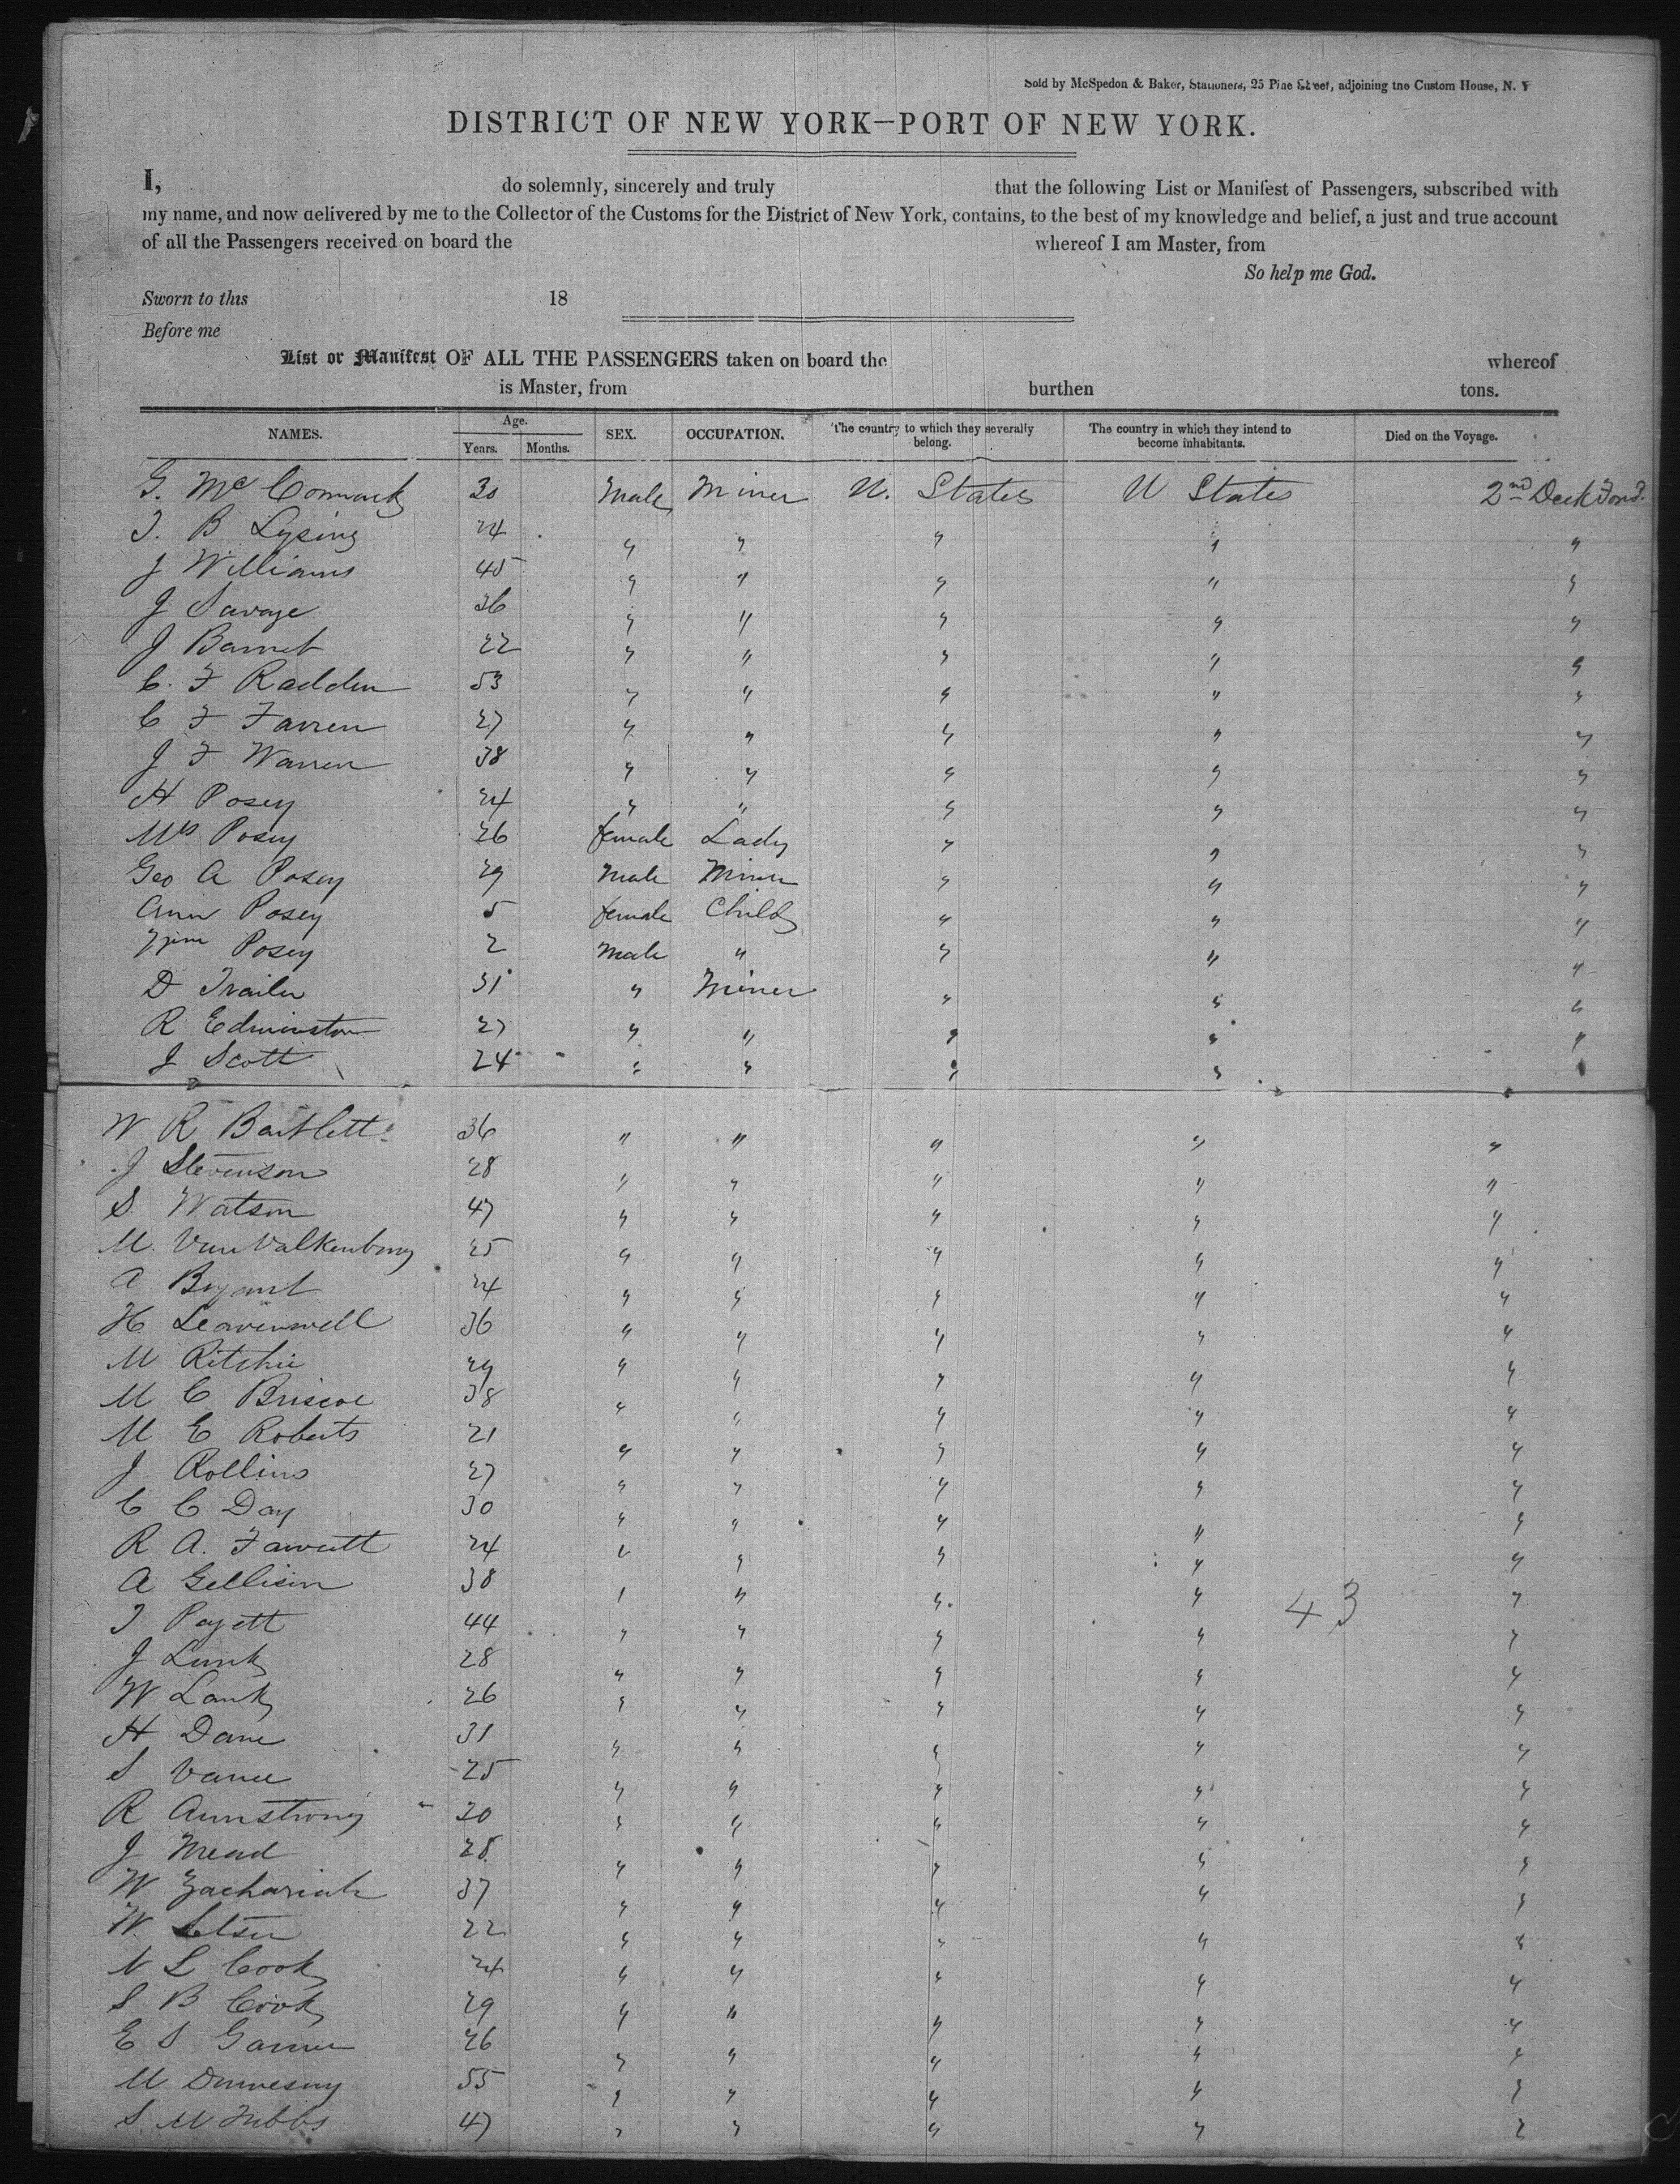 Sold by McSpedon & Baker, Stationers, 25 Pine Street, adjoining the Custom House, N. Y
DISTRICT OF NEW YORK—PORT OF NEW YORK.
I, do solemnly, sincerely and truly that the following List or Manifest of Passengers, subscribed with
my name, and now delivered by me to the Collector of the Customs for the District of New York, contains, to the best of my knowledge and belief, a just and true account
of all the Passengers received on board the whereof I am Master, from
So help me God.
Sworn to this 18
Before me
List or Manifest OF ALL THE PASSENGERS taken on board the whereof
is Master, from burthen tons.
NAMES. Age. Years. Months. SEX. OCCUPATION. The country to which they severally belong. The country in which they intend to become inhabitants. Died on the Voyage.
G. McCormack 30 Male Miner U. States U States 2nd Deck Forwd.
J. B Lysing 24 " " " " "
J Williams 45 " " " " "
J Savage 36 " " " " "
J Barnet 22 " " " " "
C. F Radden 53 " " " " "
C F Farren 27 " " " " "
J F Warren 38 " " " " "
H Posey 24 " " " " "
Mrs Posey 26 female Lady " " "
Geo A Posey 29 Male Miner " " "
Ann Posey 5 female Child " " "
Posey 2 Male " " " "
D Trailer 31 " Miner " " "
R Edminston 27 " " " " "
J Scott 24 " " " " "
W R Bartlett 36 " " " " "
J Stevenson 28 " " " " "
S Watson 47 " " " " "
M. VanValkenburg 25 " " " " "
A Bryant 24 " " " " "
H Leavenwell 36 " " " " "
M Ritchie 29 " " " " "
M C Briscoe 38 " " " " "
M E Roberts 21 " " " " "
J Rollins 27 " " " " "
C C Day 30 " " " " "
R A. Fawcett 24 " " " " "
A Gellison 38 " " " " "
43
J Payett 44 " " " " "
J Lunk 28 " " " " "
W Lank 26 " " " " "
H Dane 31 " " " " "
S Vance 25 " " " " "
R Armstrong 30 " " " " "
J Mead 28 " " " " "
W Zachariah 37 " " " " "
W. 22 " " " " "
N L Cook 24 " " " " "
S B Cook 29 " " " " "
E S Garner 26 " " " " "
M 55 " " " " "
S M Tubbs 47 " " " " "